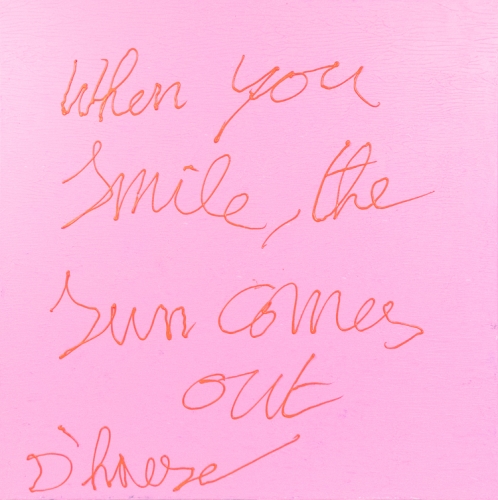 When you
Smile, the
Sun comes
out
D'haese